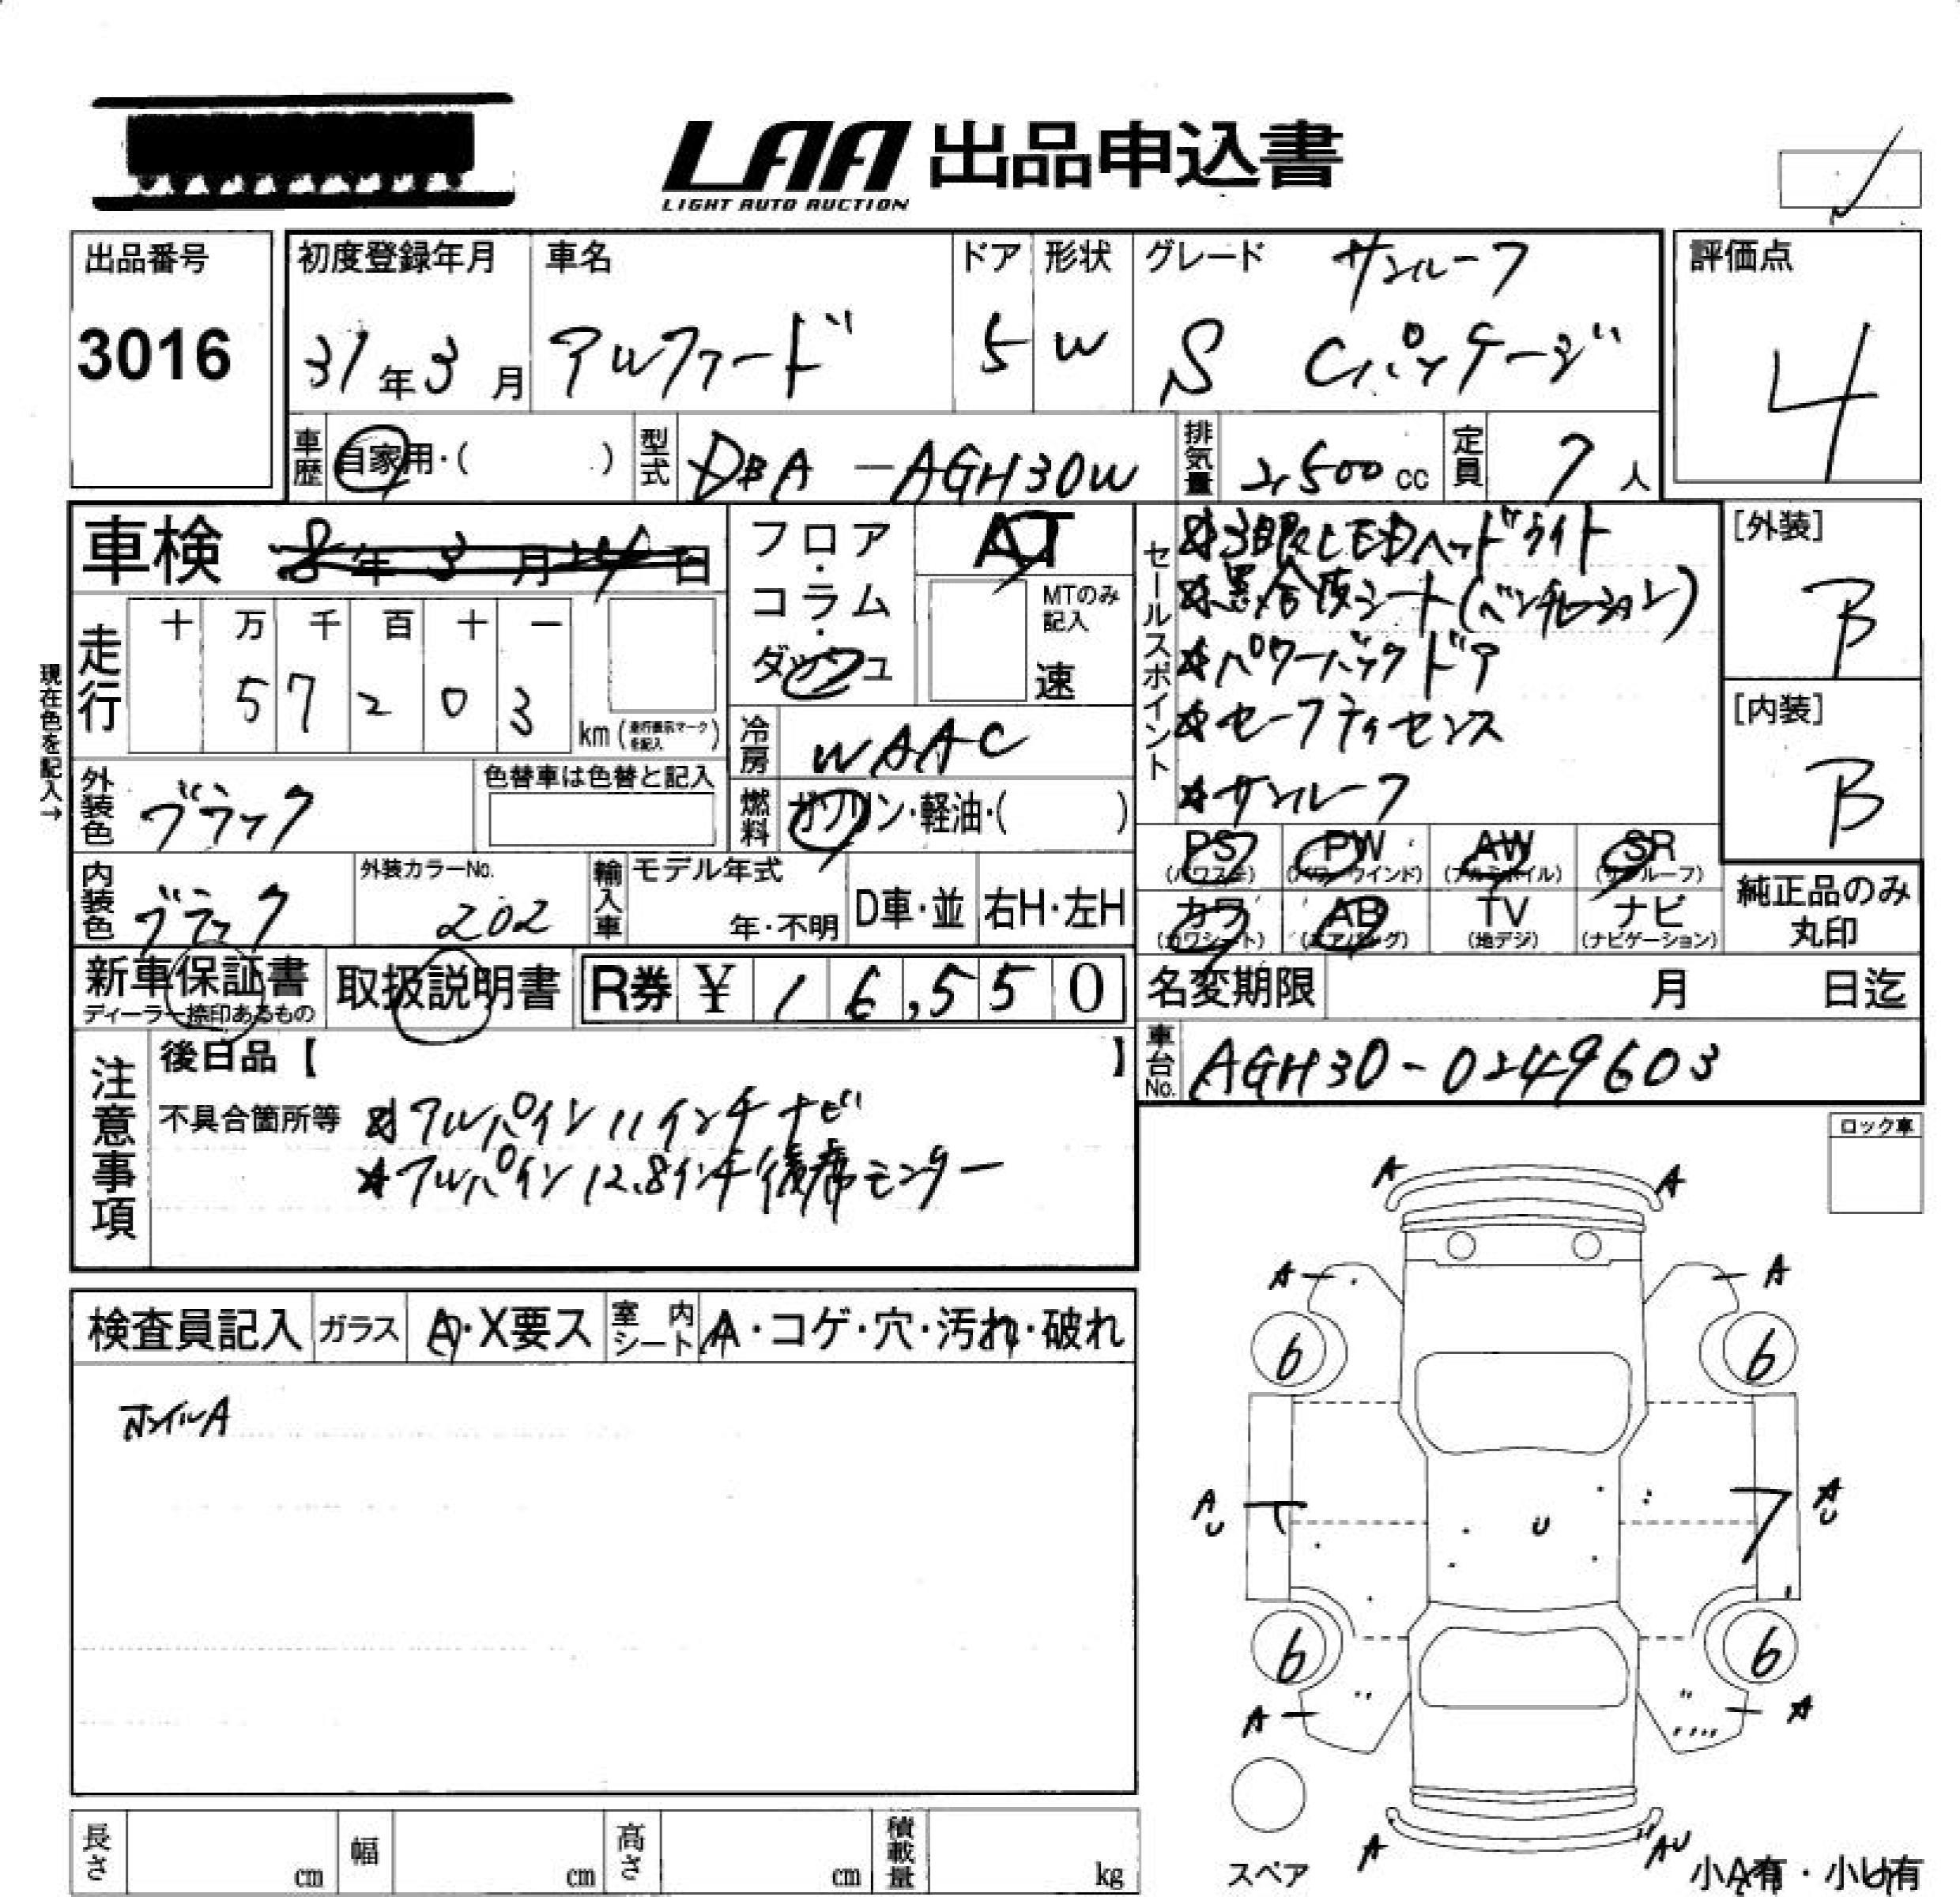 LAA 出品申込書
LIGHT AUTO AUCTION
出品番号
3016
初度登録年月
31年3月
車名
アルファード
ドア
5
形状
W
グレード
サンルーフ
S Cパッケージ
評価点
4
車歴
自家用・( )
型式
DBA-AGH30W
排気量
2,500cc
定員
7人
車検
8年3月24日
フロア・コラム・ダッシュ
AT
MTのみ記入
速
走行
十 万 千 百 十 一
5 7 2 0 3
km(走行表示マークを記入)
現在色を記入→
外装色
ブラック
色替車は色替と記入
冷房
WAAC
燃料
ガソリン・軽油・( )
内装色
ブラック
外装カラーNo.
202
輸入車
モデル年式
年・不明
D車・並
右H・左H
セールスポイント
☆3眼LEDヘッドライト
☆黒合皮シート(ベンチレーション)
☆パワーバックドア
☆セーフティセンス
☆サンルーフ
[外装]
B
[内装]
B
PS
(パワステ)
PW
(パワーウインド)
AW
(アルミホイル)
SR
(サンルーフ)
カワ
(カワシート)
AB
(エアバッグ)
TV
(地デジ)
ナビ
(ナビゲーション)
純正品のみ
丸印
新車保証書
ディーラー捺印あるもの
取扱説明書
R券 ¥ 16,550
名変期限
月 日迄
車台No.
AGH30-0249603
注意事項
後日品【 】
不具合箇所等
☆アルパイン11インチナビ
☆アルパイン12.8インチ後席モニター
ロック車
検査員記入
ガラス
A・X要ス
室内シート
A・コゲ・穴・汚れ・破れ
ホイルA
A A
A A
6 6
A U
U
A U
6 6
A A
A AU
スペア
小A有・小U有
長さ cm
幅 cm
高さ cm
積載量 kg